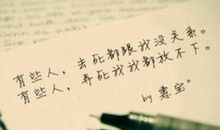 有些人，去死都跟我没关系。
有些人，弄死我我都放不下。
by 惠宝